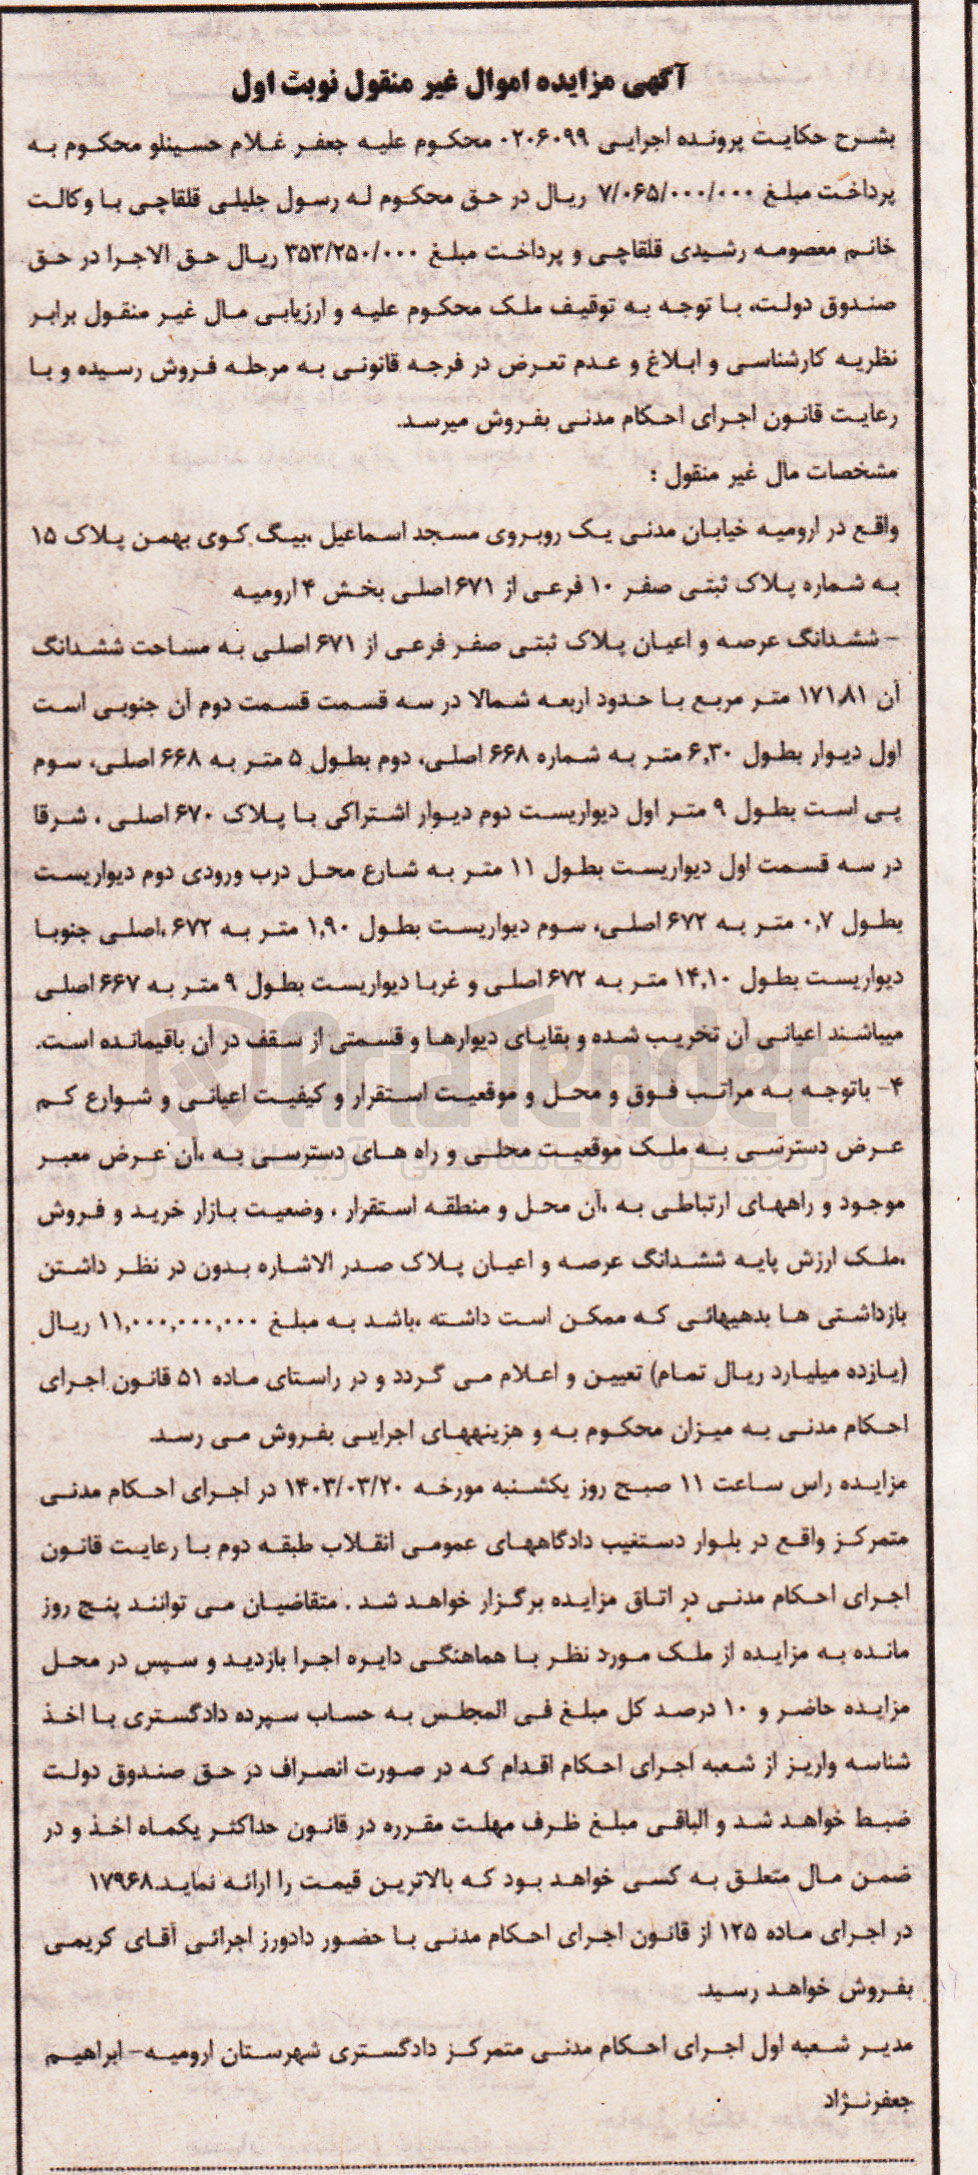 آگهی مزایده اموال غیر منقول نوبت اول
بشرح حکایت پرونده اجرایی ۰۲۰۶۰۹۹ محکوم علیه جعفر غلام حسینلو محکوم به
پرداخت مبلغ ۷/۰۶۵/۰۰۰/۰۰۰ ریال در حق محکوم له رسول جلیلی قلقاچی با وکالت
خانم معصومه رشیدی قلقاچی و پرداخت مبلغ ۳۵۳/۲۵۰/۰۰۰ ریال حق الاجرا در حق
صندوق دولت، با توجه به توقیف ملک محکوم علیه و ارزیابی مال غیر منقول برابر
نظریه کارشناسی و ابلاغ و عدم تعرض در فرجه قانونی به مرحله فروش رسیده و با
رعایت قانون اجرای احکام مدنی بفروش میرسد.
مشخصات مال غیر منقول :
واقع در ارومیه خیابان مدنی یک روبروی مسجد اسماعیل ،بیگ کوی بهمن پلاک ۱۵
به شماره پلاک ثبتی صفر ۱۰ فرعی از ۶۷۱ اصلی بخش ۴ ارومیه
- ششدانگ عرصه و اعیان پلاک ثبتی صفر فرعی از ۶۷۱ اصلی به مساحت ششدانگ
آن ۱۷۱٫۸۱ متر مربع با حدود اربعه شمالا در سه قسمت قسمت دوم آن جنوبی است
اول دیوار بطول ۶٫۳۰ متر به شماره ۶۶۸ اصلی، دوم بطول ۵ متر به ۶۶۸ اصلی، سوم
پی است بطول ۹ متر اول دیواریست دوم دیوار اشتراکی با پلاک ۶۷۰ اصلی ، شرقا
در سه قسمت اول دیواریست بطول ۱۱ متر به شارع محل درب ورودی دوم دیواریست
بطول ۰٫۷ متر به ۶۷۲ اصلی، سوم دیواریست بطول ۱٫۹۰ متر به ۶۷۲ ،اصلی جنوبا
دیواریست بطول ۱۴٫۱۰ متر به ۶۷۲ اصلی و غربا دیواریست بطول ۹ متر به ۶۶۷ اصلی
میباشند اعیانی آن تخریب شده و بقایای دیوارها و قسمتی از سقف در آن باقیمانده است.
۴- باتوجه به مراتب فوق و محل و موقعیت استقرار و کیفیت اعیانی و شوارع کم
عرض دسترسی به ملک موقعیت محلی و راه های دسترسی به ،آن عرض معبر
موجود و راههای ارتباطی به ،آن محل و منطقه استقرار ، وضعیت بازار خرید و فروش
،ملک ارزش پایه ششدانگ عرصه و اعیان پلاک صدر الاشاره بدون در نظر داشتن
بازداشتی ها بدهیهائی که ممکن است داشته ،باشد به مبلغ ۱۱,۰۰۰,۰۰۰,۰۰۰ ریال
(یازده میلیارد ریال تمام) تعیین و اعلام می گردد و در راستای ماده ۵۱ قانون اجرای
احکام مدنی به میزان محکوم به و هزینههای اجرایی بفروش می رسد.
مزایده راس ساعت ۱۱ صبح روز یکشنبه مورخه ۱۴۰۳/۰۳/۲۰ در اجرای احکام مدنی
متمرکز واقع در بلوار دستغیب دادگاههای عمومی انقلاب طبقه دوم با رعایت قانون
اجرای احکام مدنی در اتاق مزایده برگزار خواهد شد . متقاضیان می توانند پنج روز
مانده به مزایده از ملک مورد نظر با هماهنگی دایره اجرا بازدید و سپس در محل
مزایده حاضر و ۱۰ درصد کل مبلغ فی المجلس به حساب سپرده دادگستری با اخذ
شناسه واریز از شعبه اجرای احکام اقدام که در صورت انصراف در حق صندوق دولت
ضبط خواهد شد و الباقی مبلغ ظرف مهلت مقرره در قانون حداکثر یکماه اخذ و در
ضمن مال متعلق به کسی خواهد بود که بالاترین قیمت را ارائه نماید.۱۷۹۶۸
در اجرای ماده ۱۲۵ از قانون اجرای احکام مدنی با حضور دادورز اجرائی آقای کریمی
بفروش خواهد رسید.
مدیر شعبه اول اجرای احکام مدنی متمرکز دادگستری شهرستان ارومیه- ابراهیم
جعفرنژاد
AriaTender